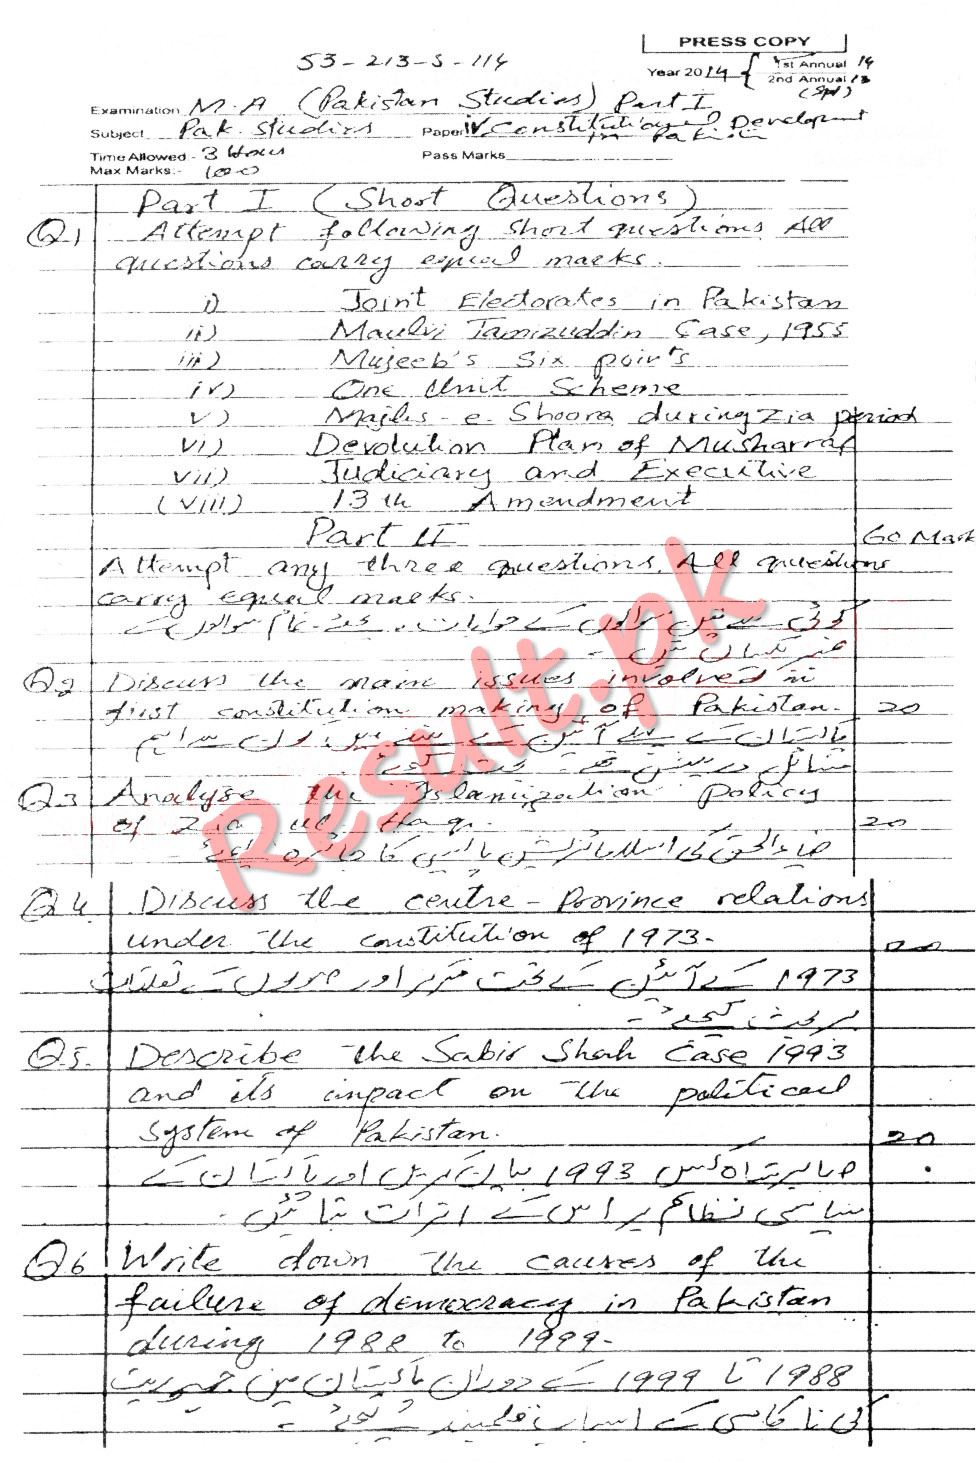 PRESS COPY
53-213-S-114
Year 2014 { 1st Annual 14
2nd Annual 13
(Spl)
Examination M.A (Pakistan Studies) Part I
Subject Pak. Studies Paper IV Constitutional Development
in Pakistan
Time Allowed - 3 Hours Pass Marks
Max Marks:- 100
Part I (Short Questions)
Q.1 Attempt following short questions. All
questions carry equal marks.
i) Joint Electorates in Pakistan
ii) Maulvi Tamizuddin Case, 1955
iii) Mujeeb's Six points
iv) One Unit Scheme
v) Majlis-e-Shoora during Zia period
vi) Devolution Plan of Musharraf
vii) Judiciary and Executive
(viii) 13th Amendment
Part II 60 Mark
Attempt any three questions. All questions
carry equal marks.
کوئی سے تین سوالوں کے جوابات دیجئے۔ تمام سوالوں کے
نمبر یکساں ہیں۔
Q.2 Discuss the main issues involved in
first constitution making of Pakistan. 20
پاکستان کے پہلے آئین کے بننے میں کون سے اہم
مسائل درپیش تھے۔ بحث کیجئے۔
Q.3 Analyse the Islamization Policy
of Zia ul Haq. 20
ضیاء الحق کی اسلامائزیشن پالیسی کا جائزہ لیجئے۔
Q.4 Discuss the centre-Province relations
under the constitution of 1973. 20
1973 کے آئین کے تحت مرکز اور صوبوں کے تعلقات
پر بحث کیجئے۔
Q.5. Describe the Sabir Shah Case 1993
and its impact on the political
system of Pakistan. 20
صابر شاہ کیس 1993 بیان کریں اور پاکستان کے
سیاسی نظام پر اس کے اثرات بتائیں۔
Q.6 Write down the causes of the
failure of democracy in Pakistan
during 1988 to 1999.
1988 تا 1999 کے دوران پاکستان میں جمہوریت
کی ناکامی کے اسباب قلمبند کیجئے۔
Result.pk